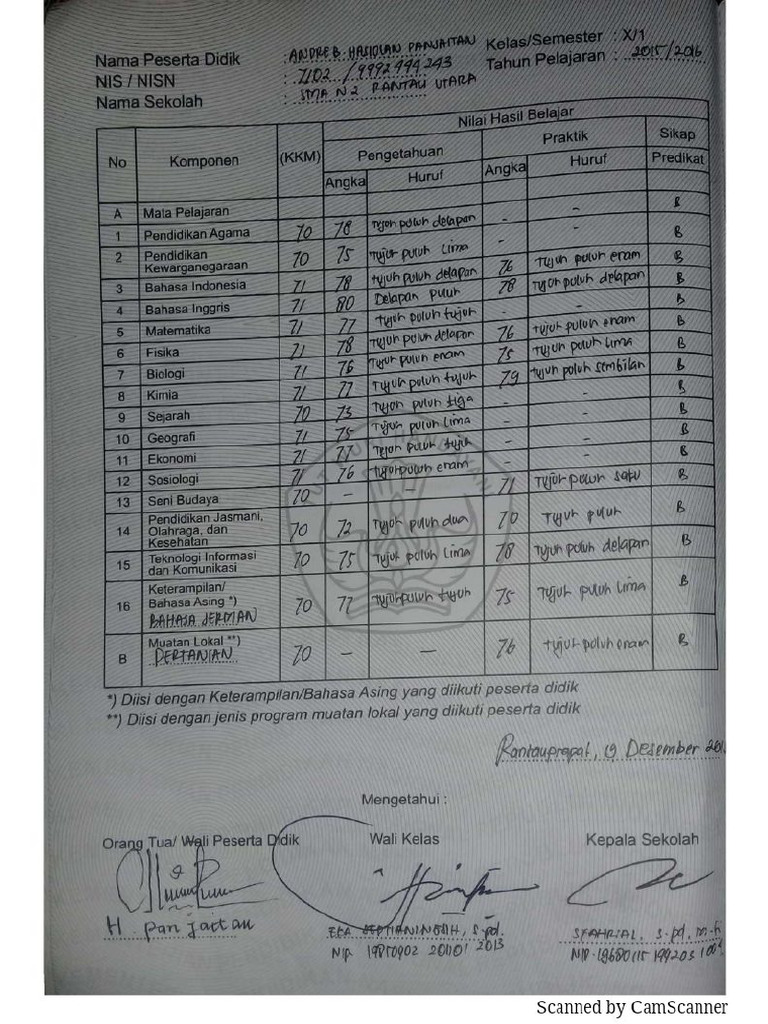 Nama Peserta Didik : ANDRE B. HASIOLAN PANJAITAN Kelas/Semester : X/1
NIS / NISN : 7102 / 9992994243 Tahun Pelajaran : 2015/2016
Nama Sekolah : SMA N 2 RANTAU UTARA
No Komponen (KKM) Nilai Hasil Belajar
Pengetahuan Praktik Sikap
Angka Huruf Angka Huruf Predikat
A Mata Pelajaran
1 Pendidikan Agama 70 78 Tujuh puluh delapan - - B
2 Pendidikan Kewarganegaraan 70 75 Tujuh puluh lima - - B
3 Bahasa Indonesia 71 78 Tujuh puluh delapan 76 Tujuh puluh enam B
4 Bahasa Inggris 71 80 Delapan puluh 78 Tujuh puluh delapan B
5 Matematika 71 77 Tujuh puluh tujuh - - B
6 Fisika 71 78 Tujuh puluh delapan 76 Tujuh puluh enam B
7 Biologi 71 76 Tujuh puluh enam 75 Tujuh puluh lima B
8 Kimia 71 77 Tujuh puluh tujuh 79 tujuh puluh sembilan B
9 Sejarah 70 73 Tujuh puluh tiga - - B
10 Geografi 71 75 Tujuh puluh lima - - B
11 Ekonomi 71 77 Tujuh puluh tujuh - - B
12 Sosiologi 71 76 Tujuh puluh enam - - B
13 Seni Budaya 70 - - 71 Tujuh puluh satu B
14 Pendidikan Jasmani, Olahraga, dan Kesehatan 70 72 Tujuh puluh dua 70 Tujuh puluh B
15 Teknologi Informasi dan Komunikasi 70 75 Tujuh puluh lima 78 Tujuh puluh delapan B
16 Keterampilan/ Bahasa Asing *) BAHASA JERMAN 70 77 Tujuh puluh tujuh 75 Tujuh puluh lima B
B Muatan Lokal **) PERTANIAN 70 - - 76 Tujuh puluh enam B
*) Diisi dengan Keterampilan/Bahasa Asing yang diikuti peserta didik
**) Diisi dengan jenis program muatan lokal yang diikuti peserta didik
Rantauprapat, 19 Desember
Mengetahui :
Orang Tua/ Wali Peserta Didik Wali Kelas Kepala Sekolah
H. Panjaitan EKA SEPTIANINGSIH, S.pd. SYAHRIAL, S.pd, m.
NIP 19850902 201101 2013 NIP. 19680115 199203 1
Scanned by CamScanner